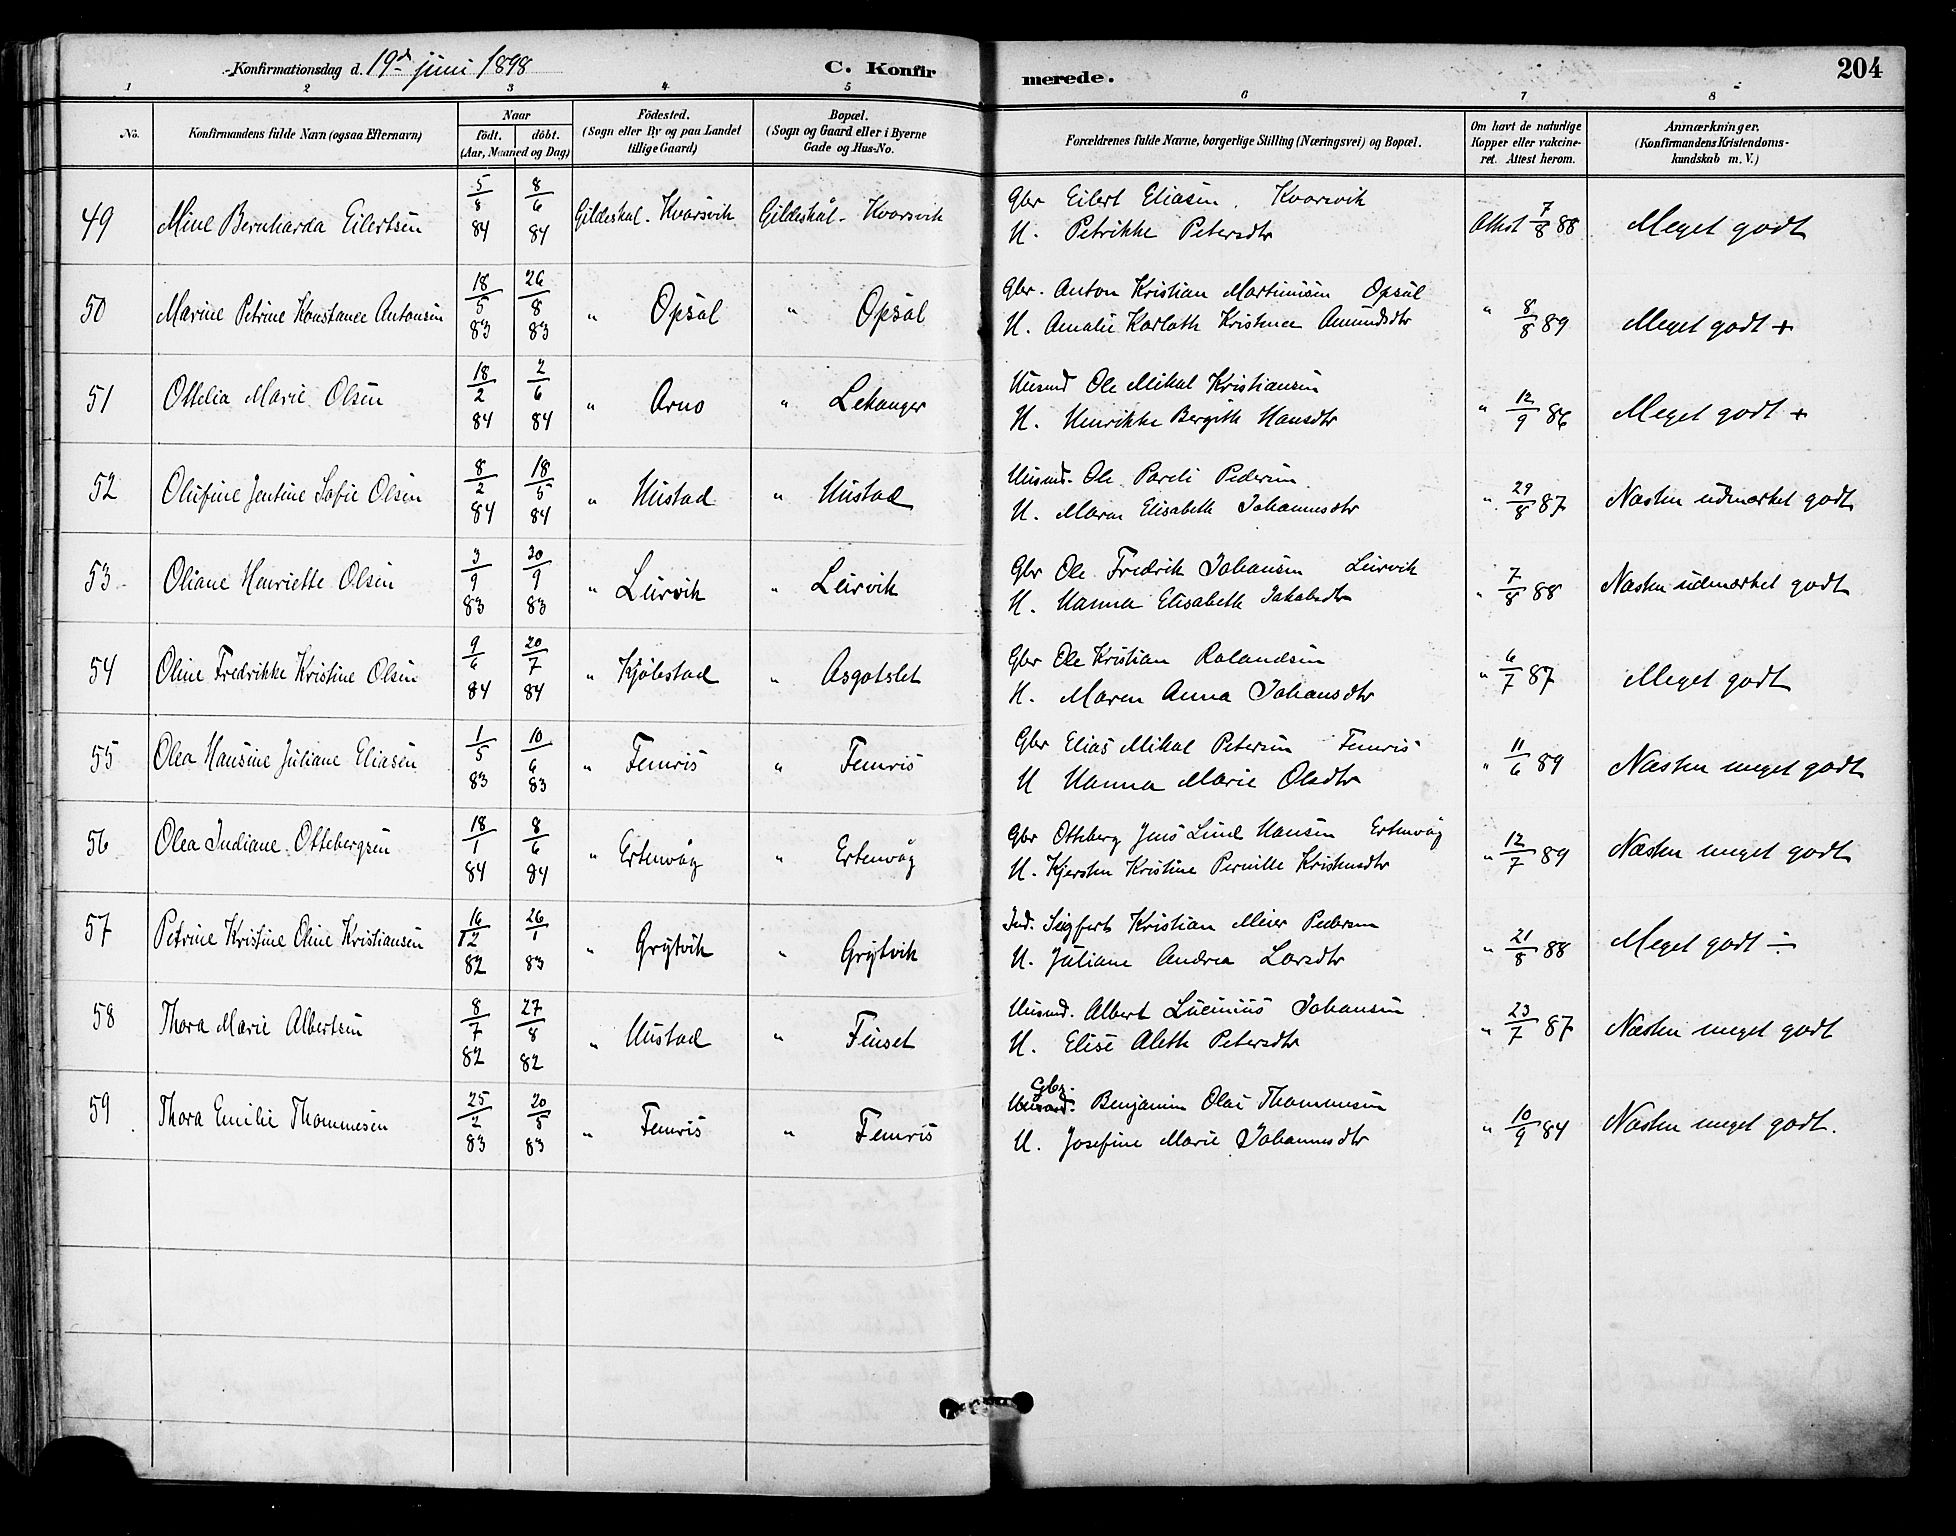 Konfirmationsdag d. 19de juni 1898 C. Konfirmerede. 204
1 2 3 4 5 6 7 8
No. Konfirmandens fulde Navn (ogsaa Efternavn) Naar födt. döbt. (Aar, Maaned og Dag) Födested. (Sogn eller By og paa Landet tillige Gaard) Bopæl. (Sogn og Gaard eller i Byerne Gade og Hus-No. Forældrenes fulde Navne, borgerlige Stilling (Næringsvei) og Bopæl. Om havt de naturlige Kopper eller vakcineret. Attest herom. Anmærkninger. (Konfirmandens Kristendomskundskab m. V.)
49 Mine Bernharda Eilertsen 5/8 84 8/6 84 Gildeskal. Kvarsvik Gildeskål. Kvarsvik Gbr Eilert Eliasen. Kvarsvik
H. Petrikke Petersdtr Attest 7/8 88 Meget godt
50 Marine Petrine Konstance Antonsen 18/5 83 26/8 83 " Opsal " Opsal Gbr. Anton Kristian Martinisen Opsal
H. Amalie Karloth Kristence Amundsdtr " 8/8 89 Meget godt +
51 Ottelia Marie Olsen 18/2 84 2/6 84 " Arno " Lekanger Husmd Ole Mikal Kristiansen
H. Henrikke Bergith Hansdtr " 12/9 86 Meget godt +
52 Olufine Jentine Sofie Olsen 8/2 84 18/5 84 " Hustad " Hustad Husmd. Ole Pareli Pedersen
H. Maren Elisabeth Johannesdtr " 29/8 87 Næsten udmærket godt
53 Oliane Henriette Olsen 3/9 83 30/9 83 " Leirvik " Leirvik Gbr Ole Fredrik Johansen Leirvik
H. Hanna Elisabeth Jakobsdtr " 7/8 88 Næsten udmærket godt
54 Oline Fredrikke Kristine Olsen 9/6 84 20/7 84 " Kjölestad " Asgotslet Gbr Ole Kristian Rolandsen
H. Maren Anna Johansdtr " 6/7 87 Meget godt
55 Olea Hansine Juliane Eliasen 1/5 83 10/6 83 " Femris " Femris Gbr Elias Mikal Petersen Femris
H Hanna Marie Olsdtr " 11/6 89 Næsten meget godt
56 Olea Indiane Ottebergsen 18/1 84 8/6 84 " Ertenvåg " Ertenvåg Gbr Otteberg Jens Lund Hansen Ertenvåg
H. Kjersten Kristine Pernille Kristensdtr " 12/7 89 Næsten meget godt
57 Petrine Kristine Oline Kristiansen 16/12 82 26/1 83 " Grytvik " Grytvik Ind. Seigfert Kristian Meier Pedersen
H. Juliane Andrea Larsdtr " 21/8 88 Meget godt ÷
58 Thora Marie Albertsen 8/7 82 27/8 82 " Hustad " Finset Husmd. Albert Lucinius Johansen
H. Elise Aleth Petersdtr " 23/7 87 Næsten meget godt
59 Thora Emilie Thommesen 25/2 83 20/5 83 " Femris " Femris Gbr. Husmd. Benjamin Olai Thommesen
H. Josefine Marie Johannesdtr " 10/9 84 Næsten meget godt.